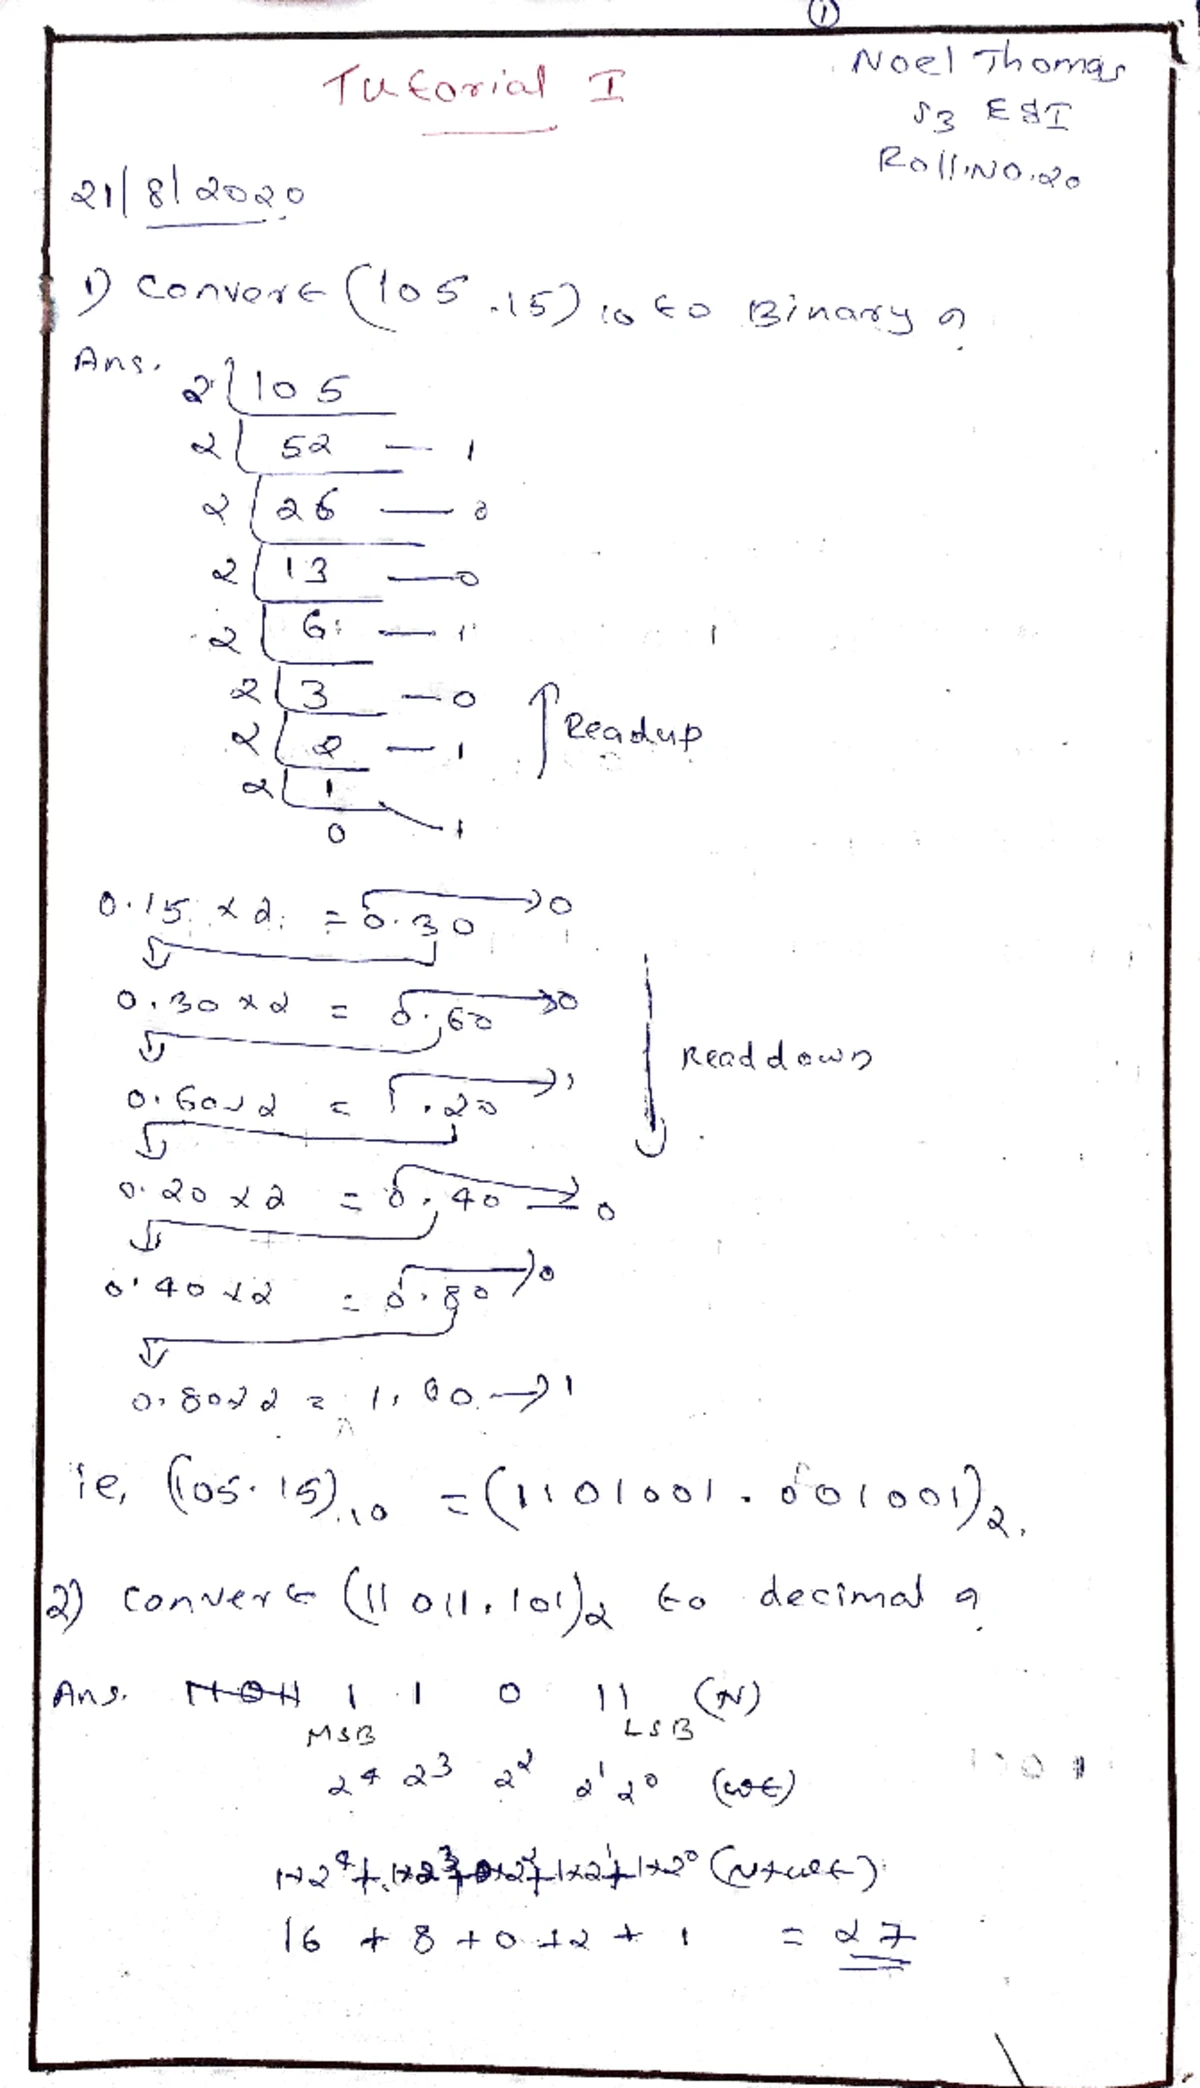 1
Tutorial I
Noel Thomas
S3 E&I
Roll.NO.20
21/8/2020
1) Convert (105.15)10 to Binary ?
Ans.
2 105
2 52 — 1
2 26 — 0
2 13 — 0
2 6 — 1
2 3 — 0
2 2 — 1
2 1
0 — 1
Readup
0.15 x 2 = 0.30 → 0
0.30 x 2 = 0.60 → 0
0.60 x 2 = 1.20 → 1
Read down
0.20 x 2 = 0.40 → 0
0.40 x 2 = 0.80 → 0
0.80 x 2 = 1.60 → 1
ie, (105.15)10 = (1101001.001001)2.
2) Convert (11011.101)2 to decimal ?
Ans. 11011 1 1 0 11 (N)
MSB LSB
2⁴ 2³ 2² 2¹ 2⁰ (wt)
1x2⁴+1x2³+0x2²+1x2¹+1x2⁰ (Nxwt)
16 + 8 + 0 + 2 + 1 = 27